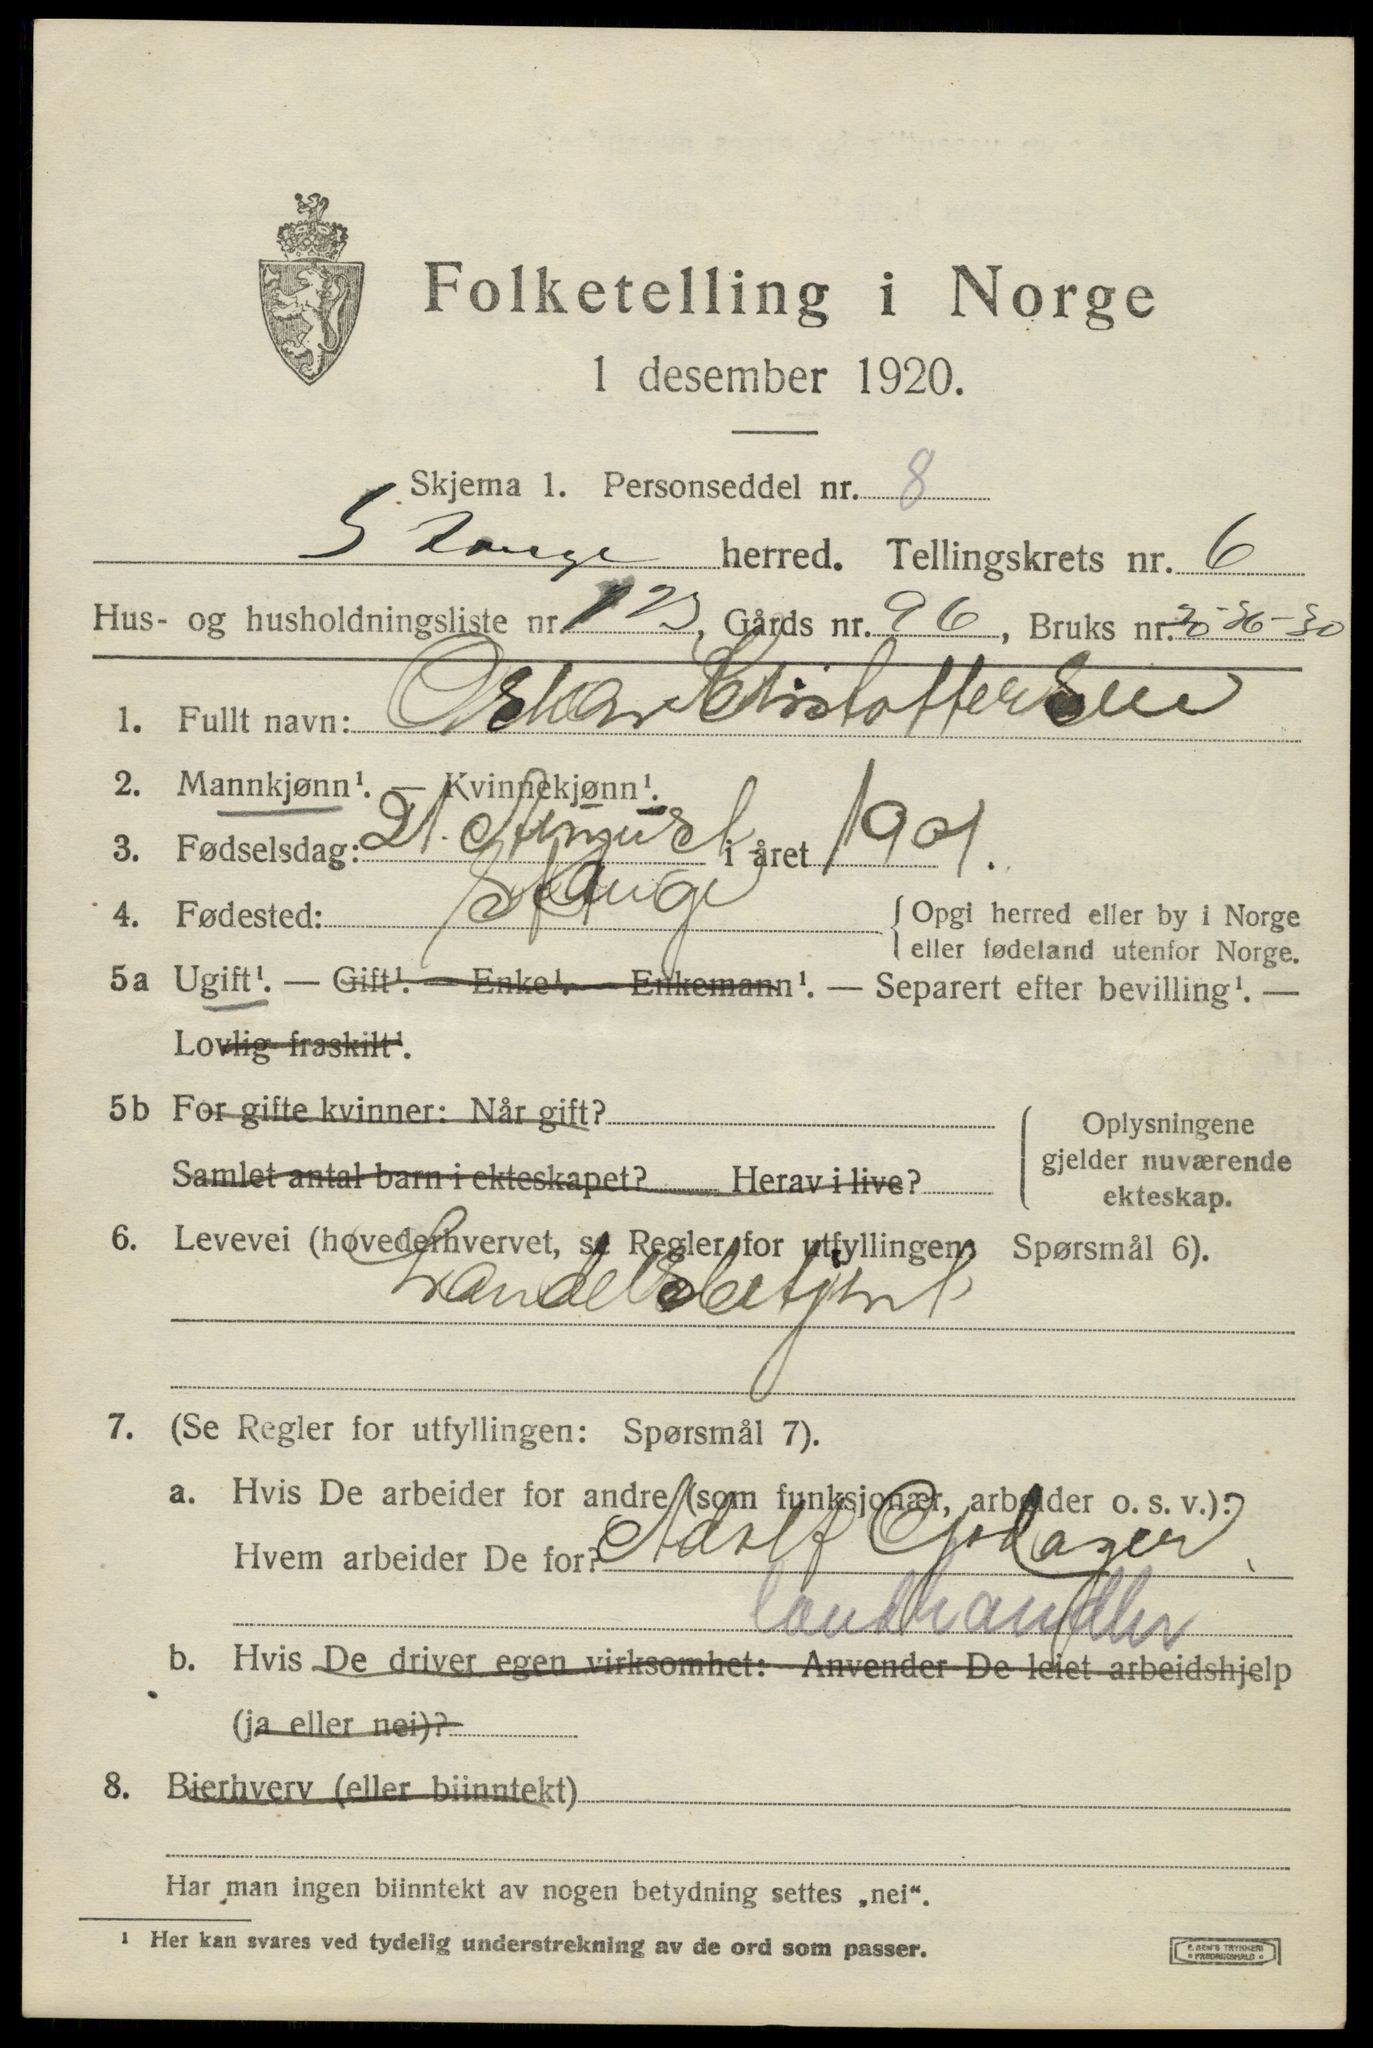 Folketelling i Norge
1 desember 1920.
Skjema 1. Personseddel nr. 8
Stange herred. Tellingskrets nr. 6
Hus- og husholdningsliste nr. 123, Gårds nr. 96, Bruks nr. 30-36-50
1. Fullt navn: Oskar Kristoffersen
2. Mannkjønn¹. — Kvinnekjønn¹.
3. Fødselsdag: 21. August i året 1901.
4. Fødested: Stange {Opgi herred eller by i Norge
eller fødeland utenfor Norge.
5a Ugift¹. — Gift¹. — Enke¹. — Enkemann¹. — Separert efter bevilling¹. —
Lovlig fraskilt¹.
5b For gifte kvinner: Når gift?
Samlet antal barn i ekteskapet? Herav i live?
Oplysningene
gjelder nuværende
ekteskap.
6. Levevei (hovederhvervet, se Regler for utfyllingen: Spørsmål 6).
Handelsbetjent
7. (Se Regler for utfyllingen: Spørsmål 7).
a. Hvis De arbeider for andre (som funksjonær, arbeider o. s. v.):
Hvem arbeider De for? Adolf Godager
landhandler
b. Hvis De driver egen virksomhet: Anvender De leiet arbeidshjelp
(ja eller nei)?
8. Bierhverv (eller biinntekt)
Har man ingen biinntekt av nogen betydning settes „nei“.
¹ Her kan svares ved tydelig understrekning av de ord som passer.
E. SEM'S TRYKKERI
FREDRIKSHALD